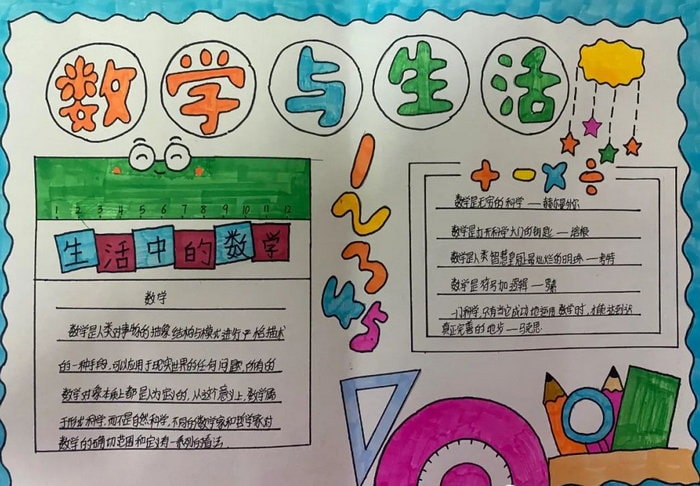 数学与生活
1 2 3 4 5 6 7 8 9 10 11 12
生活中的数学
数学
数学是人类对事物的抽象结构与模式进行严格描述
的一种手段,可以应用于现实世界的任何问题,所有的
数学对象本质上都是人为定义的,从这个意义上,数学属
于形式科学,而不是自然科学,不同的数学家和哲学家对
数学的确切范围和定义有一系列的看法。
1
2
3
4
5
+ - × ÷
数学是无穷的科学 — 赫尔曼外尔
数学是打开科学大门的钥匙 — 培根
数学是人类智慧皇冠上最灿烂的明珠 — 考特
数学是符号加逻辑 — 罗素
一门科学,只有当它成功地运用数学时,才能达到
真正完善的地步 — 马克思